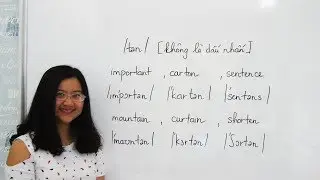 /tən/ [không là dấu nhấn]
important , carton , sentence
/ɪmˈpɔrtən/ /ˈkɑrtən/ /ˈsentəns/
mountain , curtain , shorten
/ˈmaʊntən/ /ˈkɜrtən/ /ˈʃɔrtən/